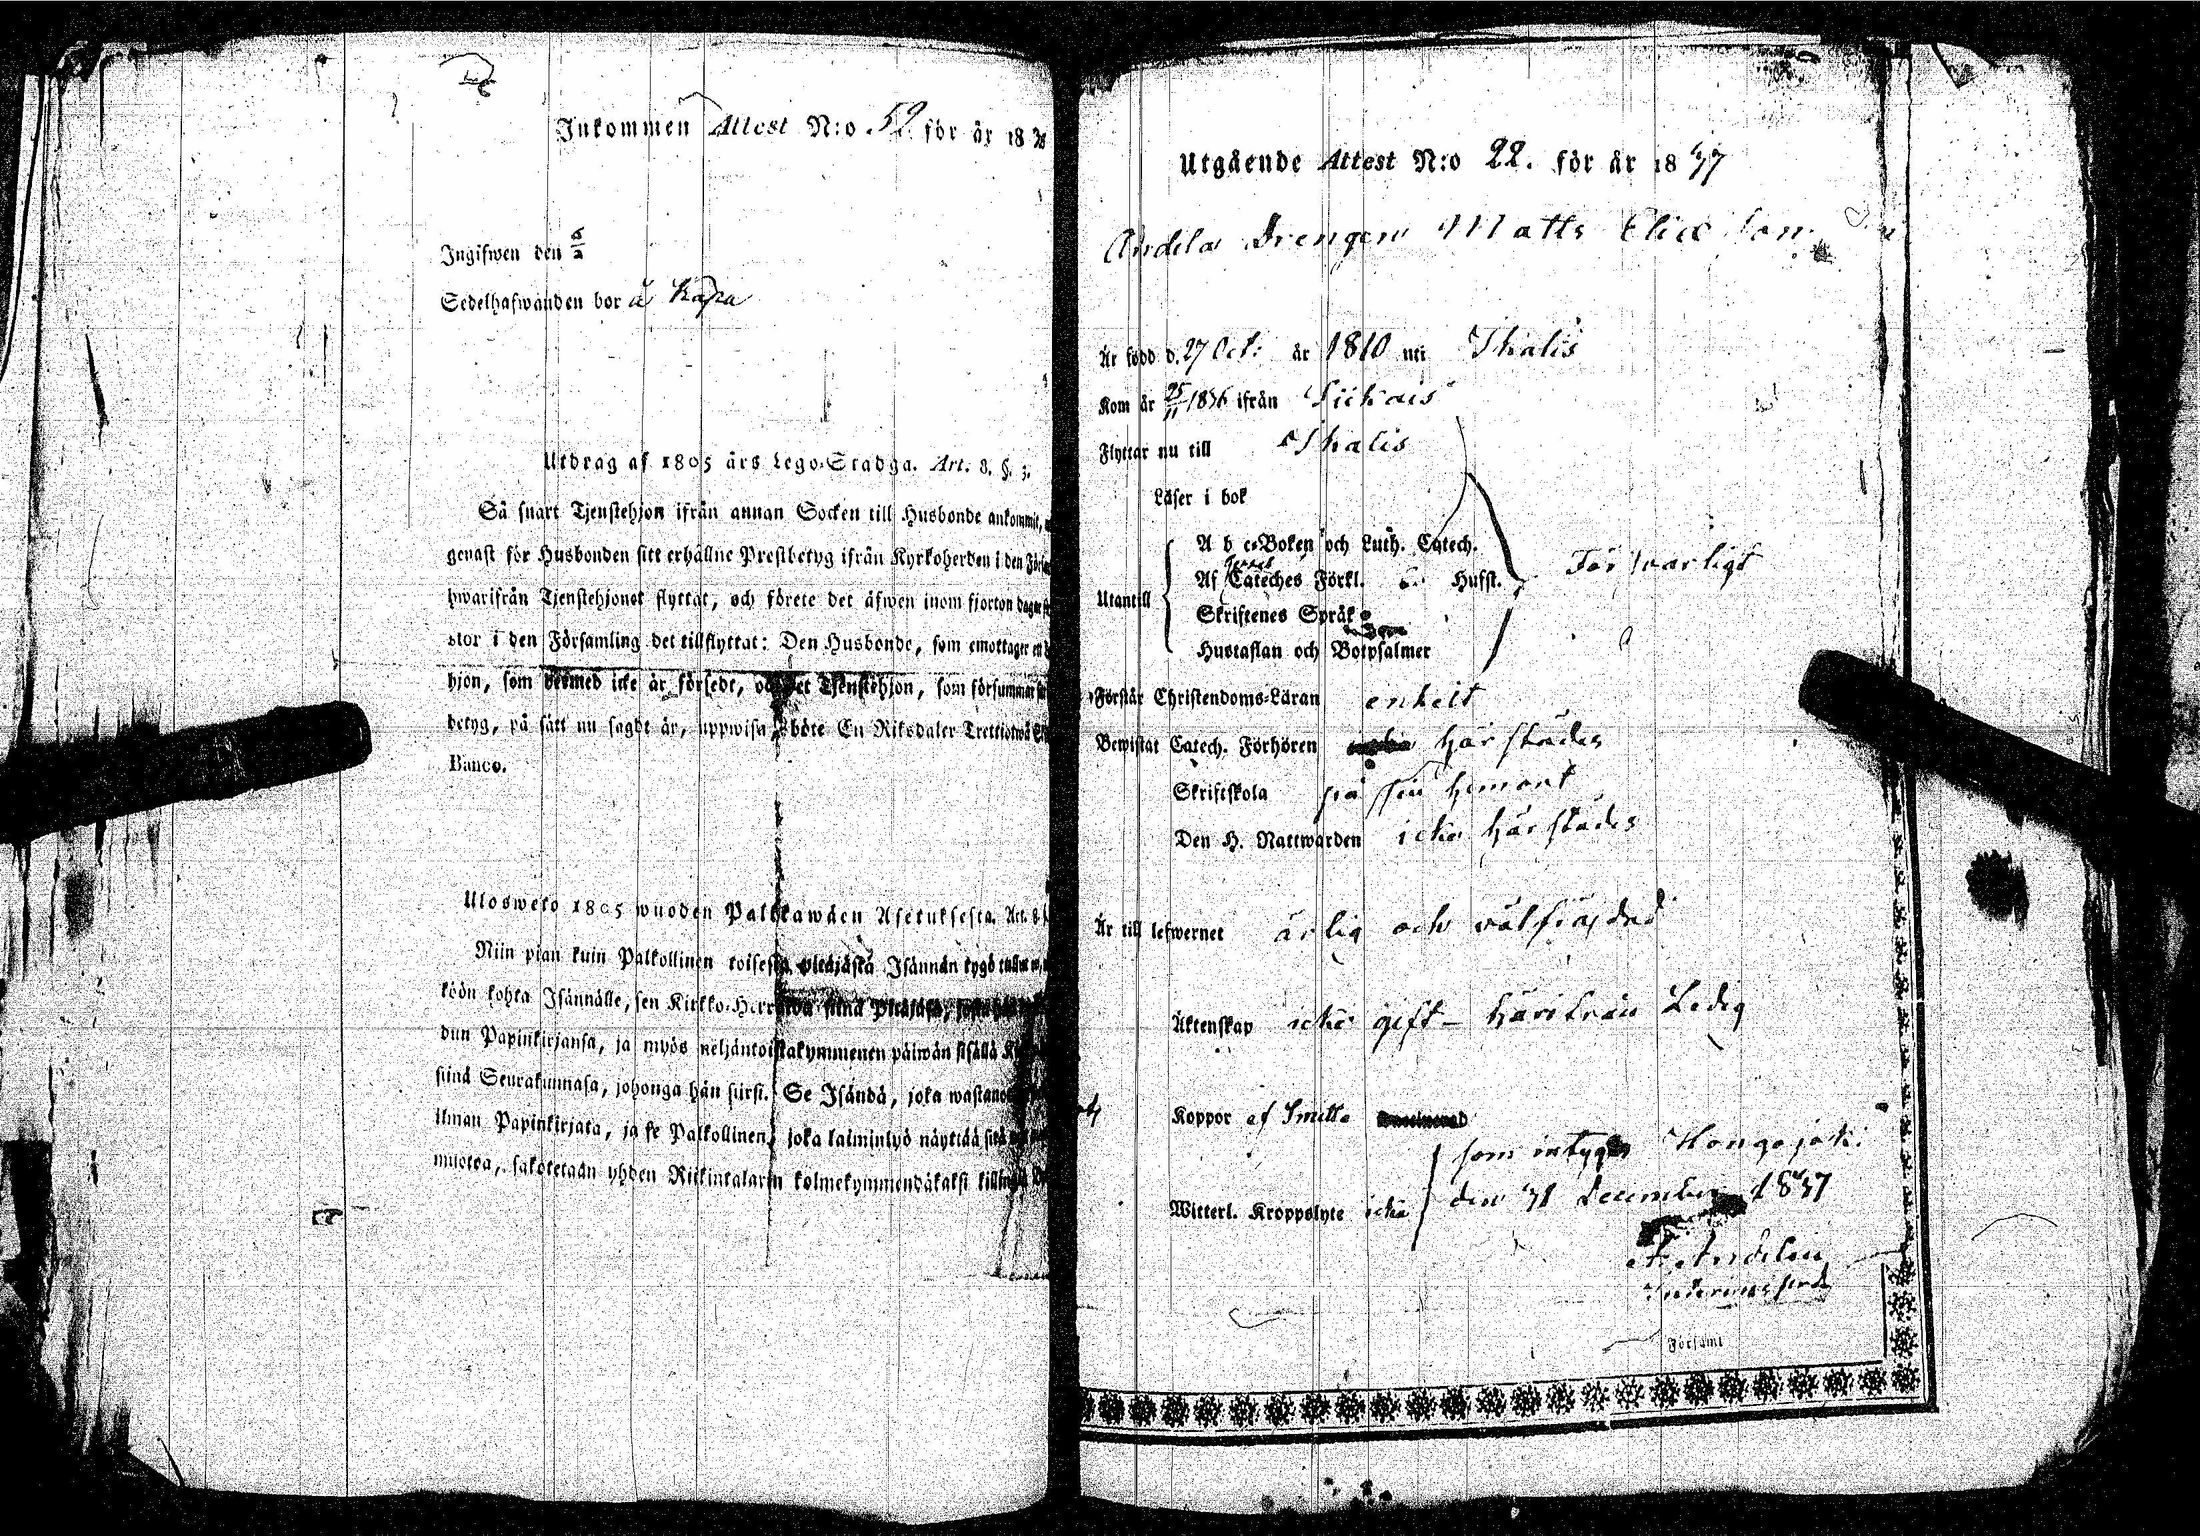 Inkommen Attest N:o 52 för år 18
Ingifwen den 6/2
Sedelhafwanden bor å Kapa
Utdrag af 1805 års Lego-Stadga. Art. 8. §. 3.
Så snart Tjenstehjon ifrån annan Socken till Husbonde ankommit,
genast för Husbonden sitt erhållne Prestbetyg ifrån Kyrkoherden i den
hwarifrån Tjenstehjonet flyttat, och förete det äfwen inom fjorton dagar
stor i den Församling det tillflyttat: Den Husbonde, som emottager
hjon, som dermed icke är försedt, och det Tjenstehjon, som försummar
betyg, på sätt nu sagdt är, uppwisa, böte En Riksdaler Trettiotwå
Banco.
Ulosweto 1805 wuoden Palkkawäen Asetuksesta. Art. 8.
Niin pian kuin Palkollinen toisesta pitäjästä Isännän tygö
köön kohta Isännälle, sen Kirkko-Herralda siinä Pitäjäsä,
dun Papinkirjansa, ja myös neljäntoistakymmenen päiwän sisällä
siinä Seurakunnasa, johonga hän siirsi. Se Isändä, joka
ilman Papinkirjata, ja se Palkollinen, joka laiminlyö näyttää sitä
muotoa, sakotetaan yhden Rickintalarin kolmekymmendäkaksi killingiä
Utgående Attest N:o 22. för år 1837
Drengen Matts
Är född d. 27 Oct: år 1810 uti Thalis
Kom år 25/11 1836 ifrån
Flyttar nu till Thalis
Läser i bok
A b c-Boken och Luth. Catech.
Af Cateches Förkl. Husft.
Utantill
Skriftenes Språk
Hustaflan och Botpsalmer
Försvarligt
Förstår Christendoms-Läran enkelt
Bewistat Catech. Förhören här städes
Skriftskola på sin hemort
Den H. Nattwarden icke här städes
Är till lefwernet ärlig och välfräjdad
Äktenskap icke gift - härifrån Ledig
Koppor af Smitta
som intygas Hongojoki
Witterl. Kroppslyte icke
den 31 December 1837
Församl